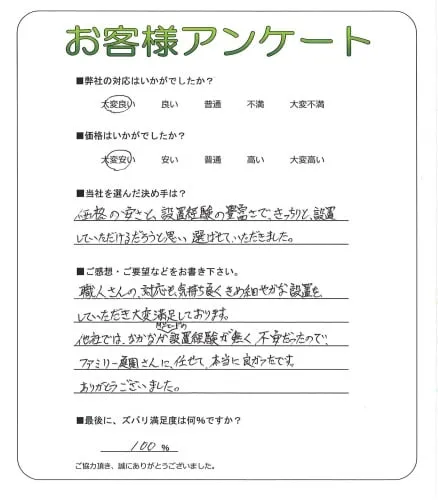 お客様アンケート
■弊社の対応はいかがでしたか？
大変良い 良い 普通 不満 大変不満
■価格はいかがでしたか？
大変安い 安い 普通 高い 大変高い
■当社を選んだ決め手は？
価格の安さと、設置経験の豊富さで、きっちりと、設置
していただけるだろうと思い 選ばせていただきました。
■ご感想・ご要望などをお書き下さい。
職人さんの、対応も、気持ち良く きめ細やかな設置を、
していただき大変満足しております。
他社では、なかなか設置経験が無く、不安だったので、
ファミリー庭園さんに、任せて、本当に良かったです。
ありがとうございました。
■最後に、ズバリ満足度は何％ですか？
100 ％
ご協力頂き、誠にありがとうございました。